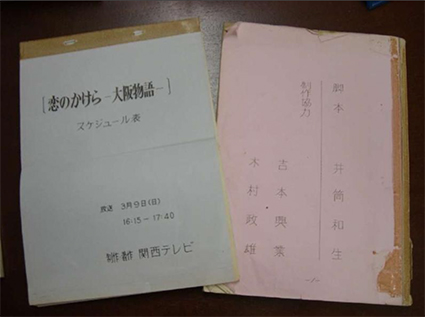 [恋のかけら-大阪物語-]
スケジュール表
放送 3月9日(日)
16:15-17:40
制作著作 関西テレビ
脚本 井筒和生
制作協力
吉本興業
木村政雄
-1-